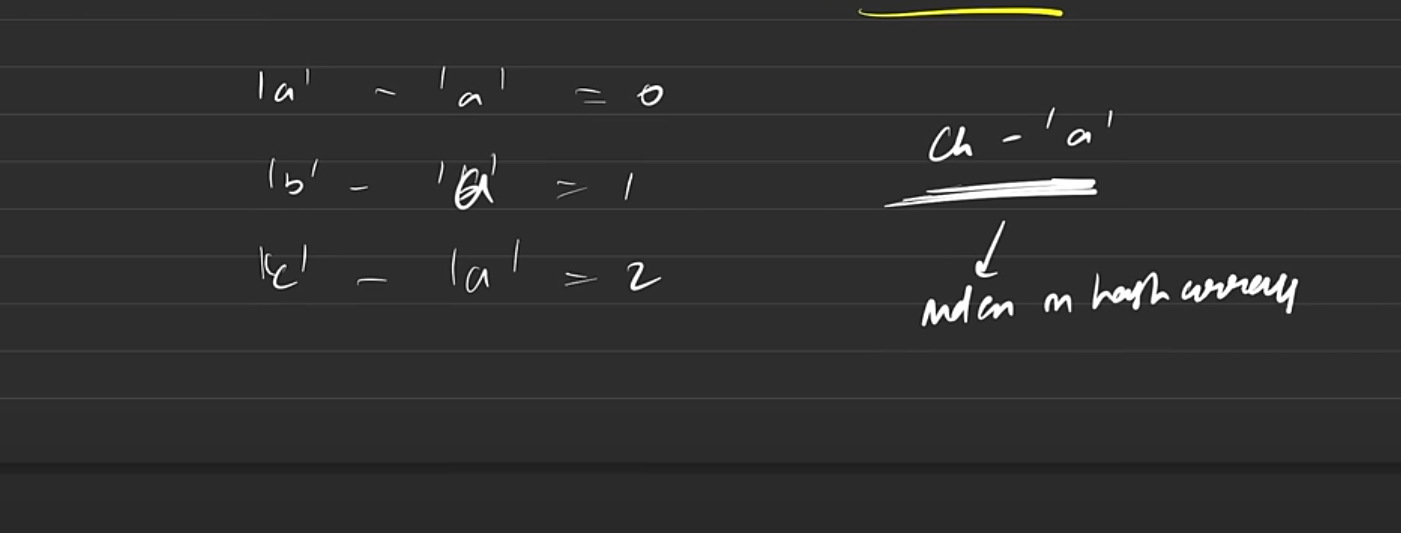 'a' - 'a' = 0
'b' - 'a' = 1
'c' - 'a' = 2
ch - 'a'
index in hash array